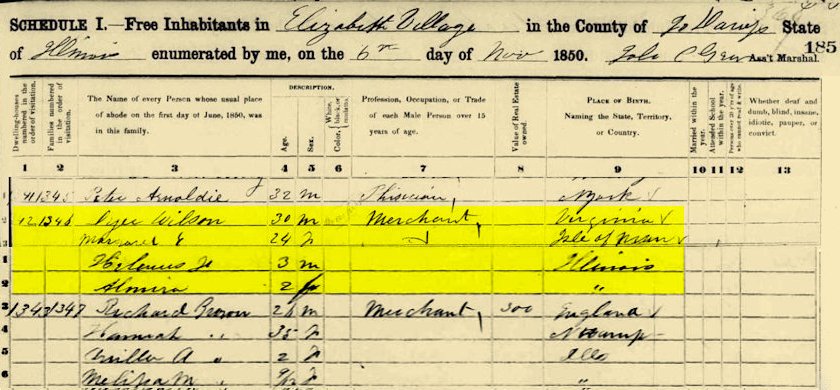 SCHEDULE I.—Free Inhabitants in Elizabeth Village in the County of Jo Daviess State
of Illinois enumerated by me, on the 6th day of Nov 1850. Ass't Marshal. 185
Dwelling-houses numbered in the order of visitation.
Families numbered in the order of visitation.
The Name of every Person whose usual place of abode on the first day of June, 1850, was in this family.
DESCRIPTION.
Age.
Sex.
White, black, or mulatto.
Color
Profession, Occupation, or Trade of each Male Person over 15 years of age.
Value of Real Estate owned.
PLACE OF BIRTH.
Naming the State, Territory, or Country.
Married within the year.
Attended School within the year.
Persons over 20 years of age who cannot read & write.
Whether deaf and dumb, blind, insane, idiotic, pauper, or convict.
1 2 3 4 5 6 7 8 9 10 11 12 13
1345 Arnoldie 32 m
1346 Wilson 30 m Merchant, Virginia
Margaret E 24 f Isle of Man
1 3 m Illinois
2 Almira 2 f "
3 1347 Richard Brown 26 m Merchant, 300 England
4 Hannah " 35 f
5 A " 2 f Ills
6 Melissa M " 9/12 f "